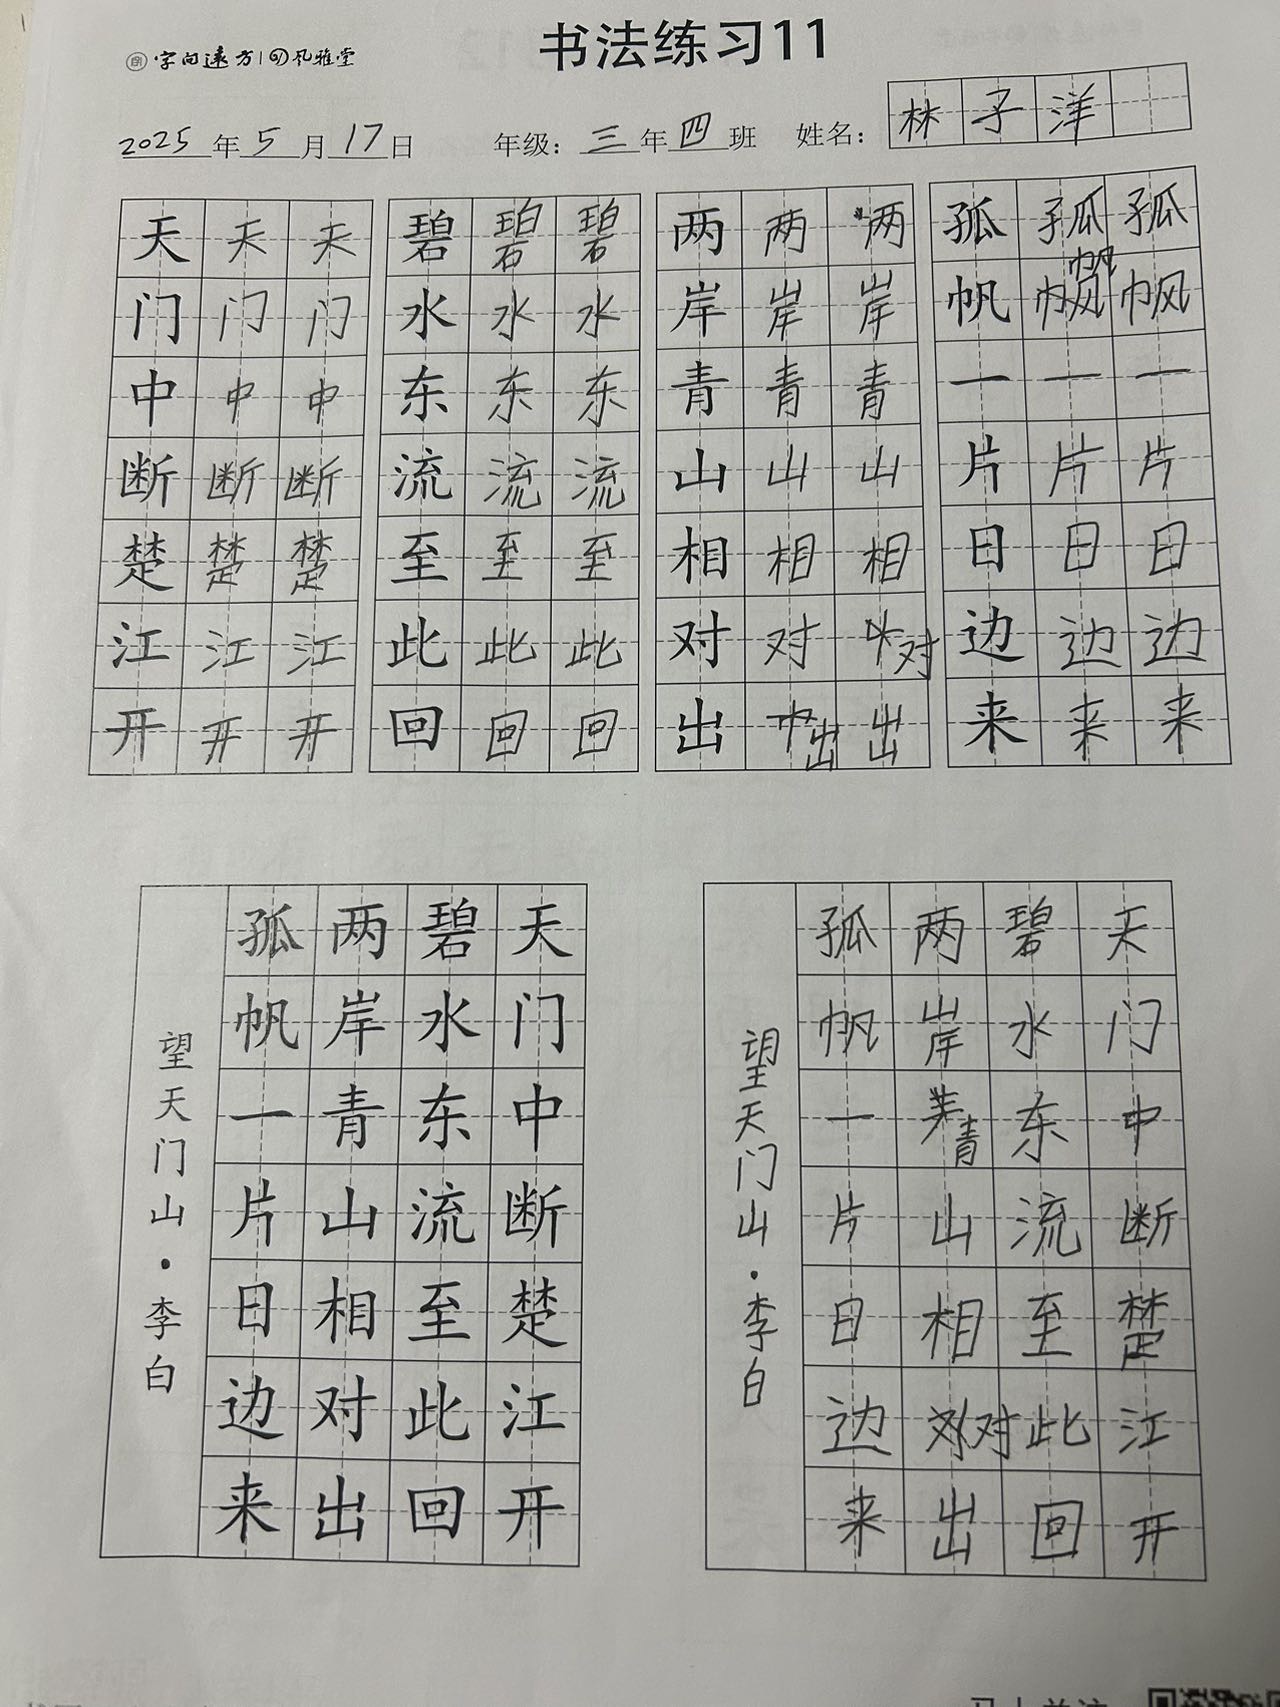 字向远方 风雅堂
书法练习11
2025年5月17日 年级：三年四班 姓名：林子洋
天天天 碧碧碧 两两两 孤孤孤
门门门 水水水 岸岸岸 帆帆帆
中中中 东东东 青青青 一一一
断断断 流流流 山山山 片片片
楚楚楚 至至至 相相相 日日日
江江江 此此此 对对对 边边边
开开开 回回回 出出出 来来来
天门中断楚江开
碧水东流至此回
两岸青山相对出
孤帆一片日边来
望天门山·李白
天门中断楚江开
碧水东流至此回
两岸青山相对出
孤帆一片日边来
望天门山·李白